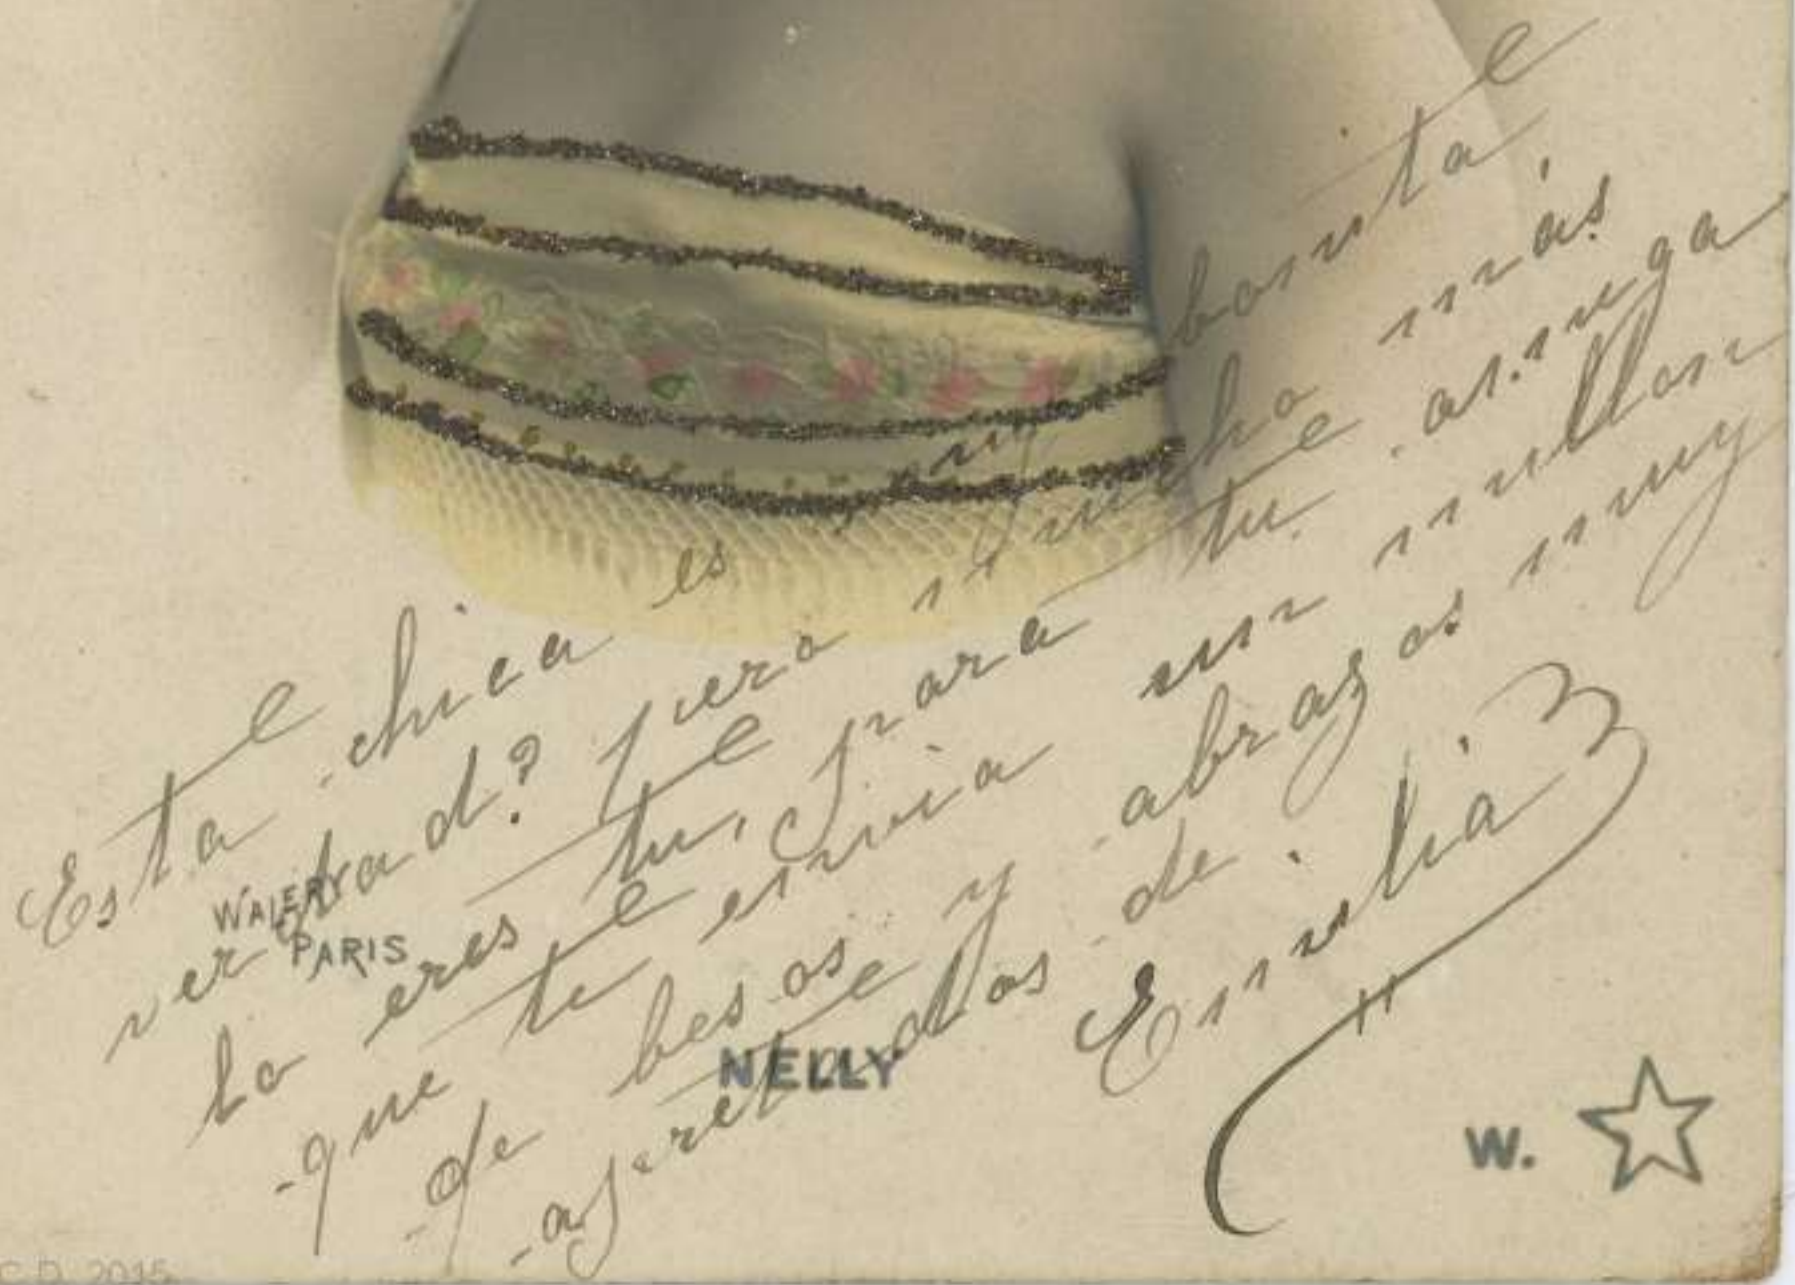 Esta chica es muy bonita
verdad? pero mucho más
lo eres tu, para tu amiga
que te envia un millon
de besos y abrazos muy
apretados de
Emilia
WALERY
PARIS
NELLY
W.
C.D. 2015